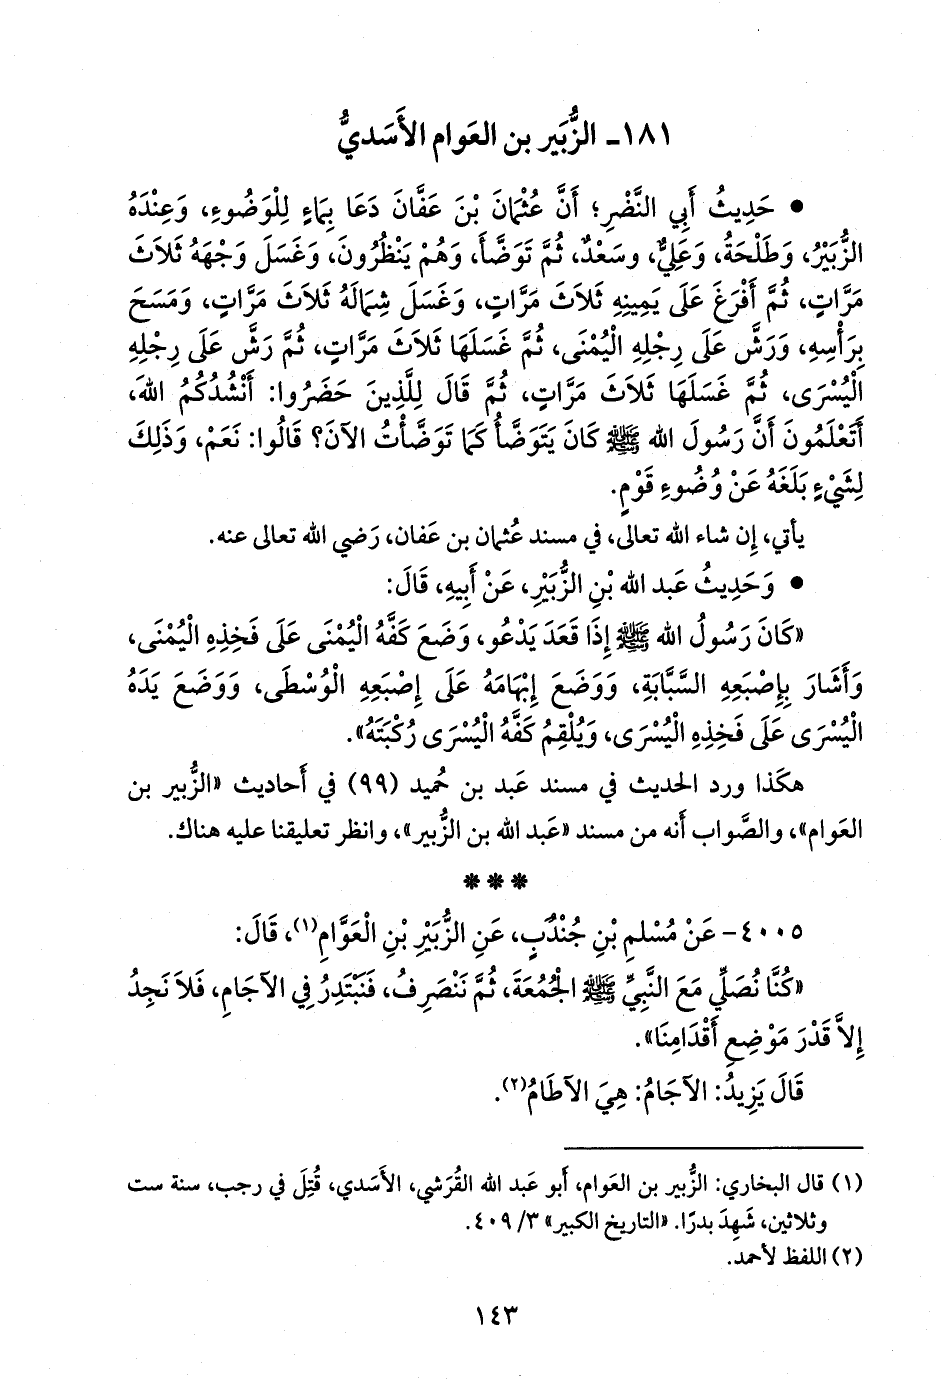 ١٨١- الزُّبَير بن العَوام الأَسَديُّ
• حَدِيثُ أَبِي النَّضْرِ؛ أَنَّ عُثْمَانَ بْنَ عَفَّانَ دَعَا بِمَاءٍ لِلْوَضُوءِ، وَعِنْدَهُ
الزُّبَيْرُ، وَطَلْحَةُ، وَعَلِيٌّ، وسَعْدٌ، ثُمَّ تَوَضَّأَ، وَهُمْ يَنْظُرُونَ، وَغَسَلَ وَجْهَهُ ثَلاَثَ
مَرَّاتٍ، ثُمَّ أَفْرَغَ عَلَى يَمِينِهِ ثَلاَثَ مَرَّاتٍ، وَغَسَلَ شِمَالَهُ ثَلاَثَ مَرَّاتٍ، وَمَسَحَ
بِرَأْسِهِ، وَرَشَّ عَلَى رِجْلِهِ الْيُمْنَى، ثُمَّ غَسَلَهَا ثَلاَثَ مَرَّاتٍ، ثُمَّ رَشَّ عَلَى رِجْلِهِ
الْيُسْرَى، ثُمَّ غَسَلَهَا ثَلاَثَ مَرَّاتٍ، ثُمَّ قَالَ لِلَّذِينَ حَضَرُوا: أَنْشُدُكُمُ اللهَ،
أَتَعْلَمُونَ أَنَّ رَسُولَ الله ﷺ كَانَ يَتَوَضَّأُ كَمَا تَوَضَّأْتُ الآنَ؟ قَالُوا: نَعَمْ، وَذَلِكَ
لِشَيْءٍ بَلَغَهُ عَنْ وُضُوءِ قَوْمٍ.
يأتي، إِن شاء الله تعالى، في مسند عُثمان بن عَفان، رَضي الله تعالى عنه.
• وَحَدِيثُ عَبد الله بْنِ الزُّبَيْرِ، عَنْ أَبِيهِ، قَالَ:
«كَانَ رَسُولُ الله ﷺ إِذَا قَعَدَ يَدْعُو، وَضَعَ كَفَّهُ الْيُمْنَى عَلَى فَخِذِهِ الْيُمْنَى،
وَأَشَارَ بِإِصْبَعِهِ السَّبَّابَةِ، وَوَضَعَ إِبْهَامَهُ عَلَى إِصْبَعِهِ الْوُسْطَى، وَوَضَعَ يَدَهُ
الْيُسْرَى عَلَى فَخِذِهِ الْيُسْرَى، وَيُلْقِمُ كَفَّهُ الْيُسْرَى رُكْبَتَهُ».
هكَذا ورد الحديث في مسند عَبد بن حُميد (٩٩) في أَحاديث «الزُّبير بن
العَوام»، والصَّواب أَنه من مسند «عَبد الله بن الزُّبير»، وانظر تعليقنا عليه هناك.
***
٤٠٠٥- عَنْ مُسْلِمِ بْنِ جُنْدُبٍ، عَنِ الزُّبَيْرِ بْنِ الْعَوَّامِ(١)، قَالَ:
«كُنَّا نُصَلِّي مَعَ النَّبِيِّ ﷺ الْجُمُعَةَ، ثُمَّ نَنْصَرِفُ، فَنَبْتَدِرُ فِي الآجَامِ، فَلاَ نَجِدُ
إِلاَّ قَدْرَ مَوْضِعِ أَقْدَامِنَا».
قَالَ يَزِيدُ: الآجَامُ: هِيَ الآطَامُ(٢).
(١) قال البخاري: الزُّبير بن العَوام، أَبو عَبد الله القُرَشي، الأَسَدي، قُتِلَ في رجب، سنة ست
وثلاثين، شَهِدَ بدرًا. «التاريخ الكبير» ٣/ ٤٠٩.
(٢) اللفظ لأحمد.
١٤٣